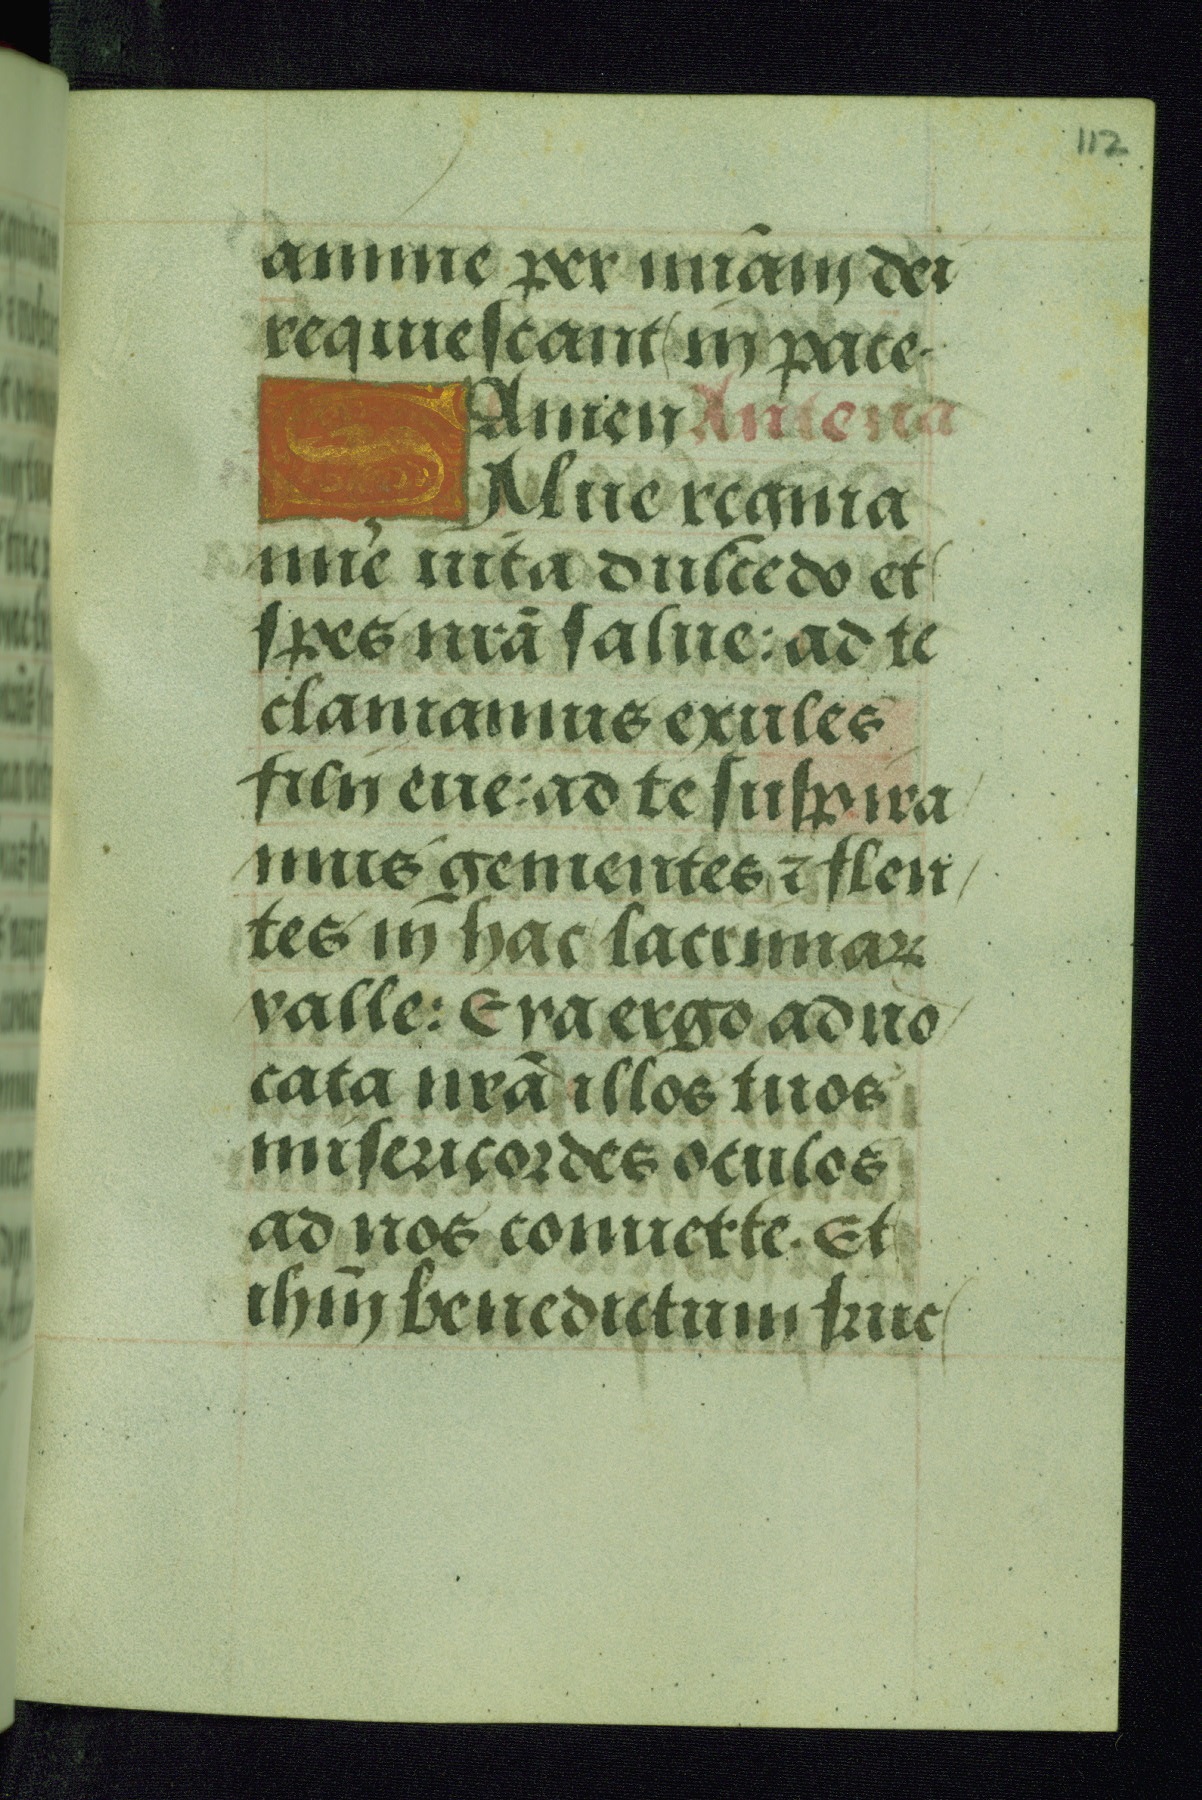 112
anime per miãm dei
requiescant in pace.
Amen Antena
SAlue regina
mie᷒ uita dulcedo et
spes nrã salue: ad te
clamamus exules
filij eue: ad te suspira
mus gementes ⁊ flen
tes in̄ hac lacrimaꝝ
valle: Eya ergo aduo
cata nrã illos tuos
misericordes oculos
ad nos conuerte. Et
ihm̄ benedictum fruc